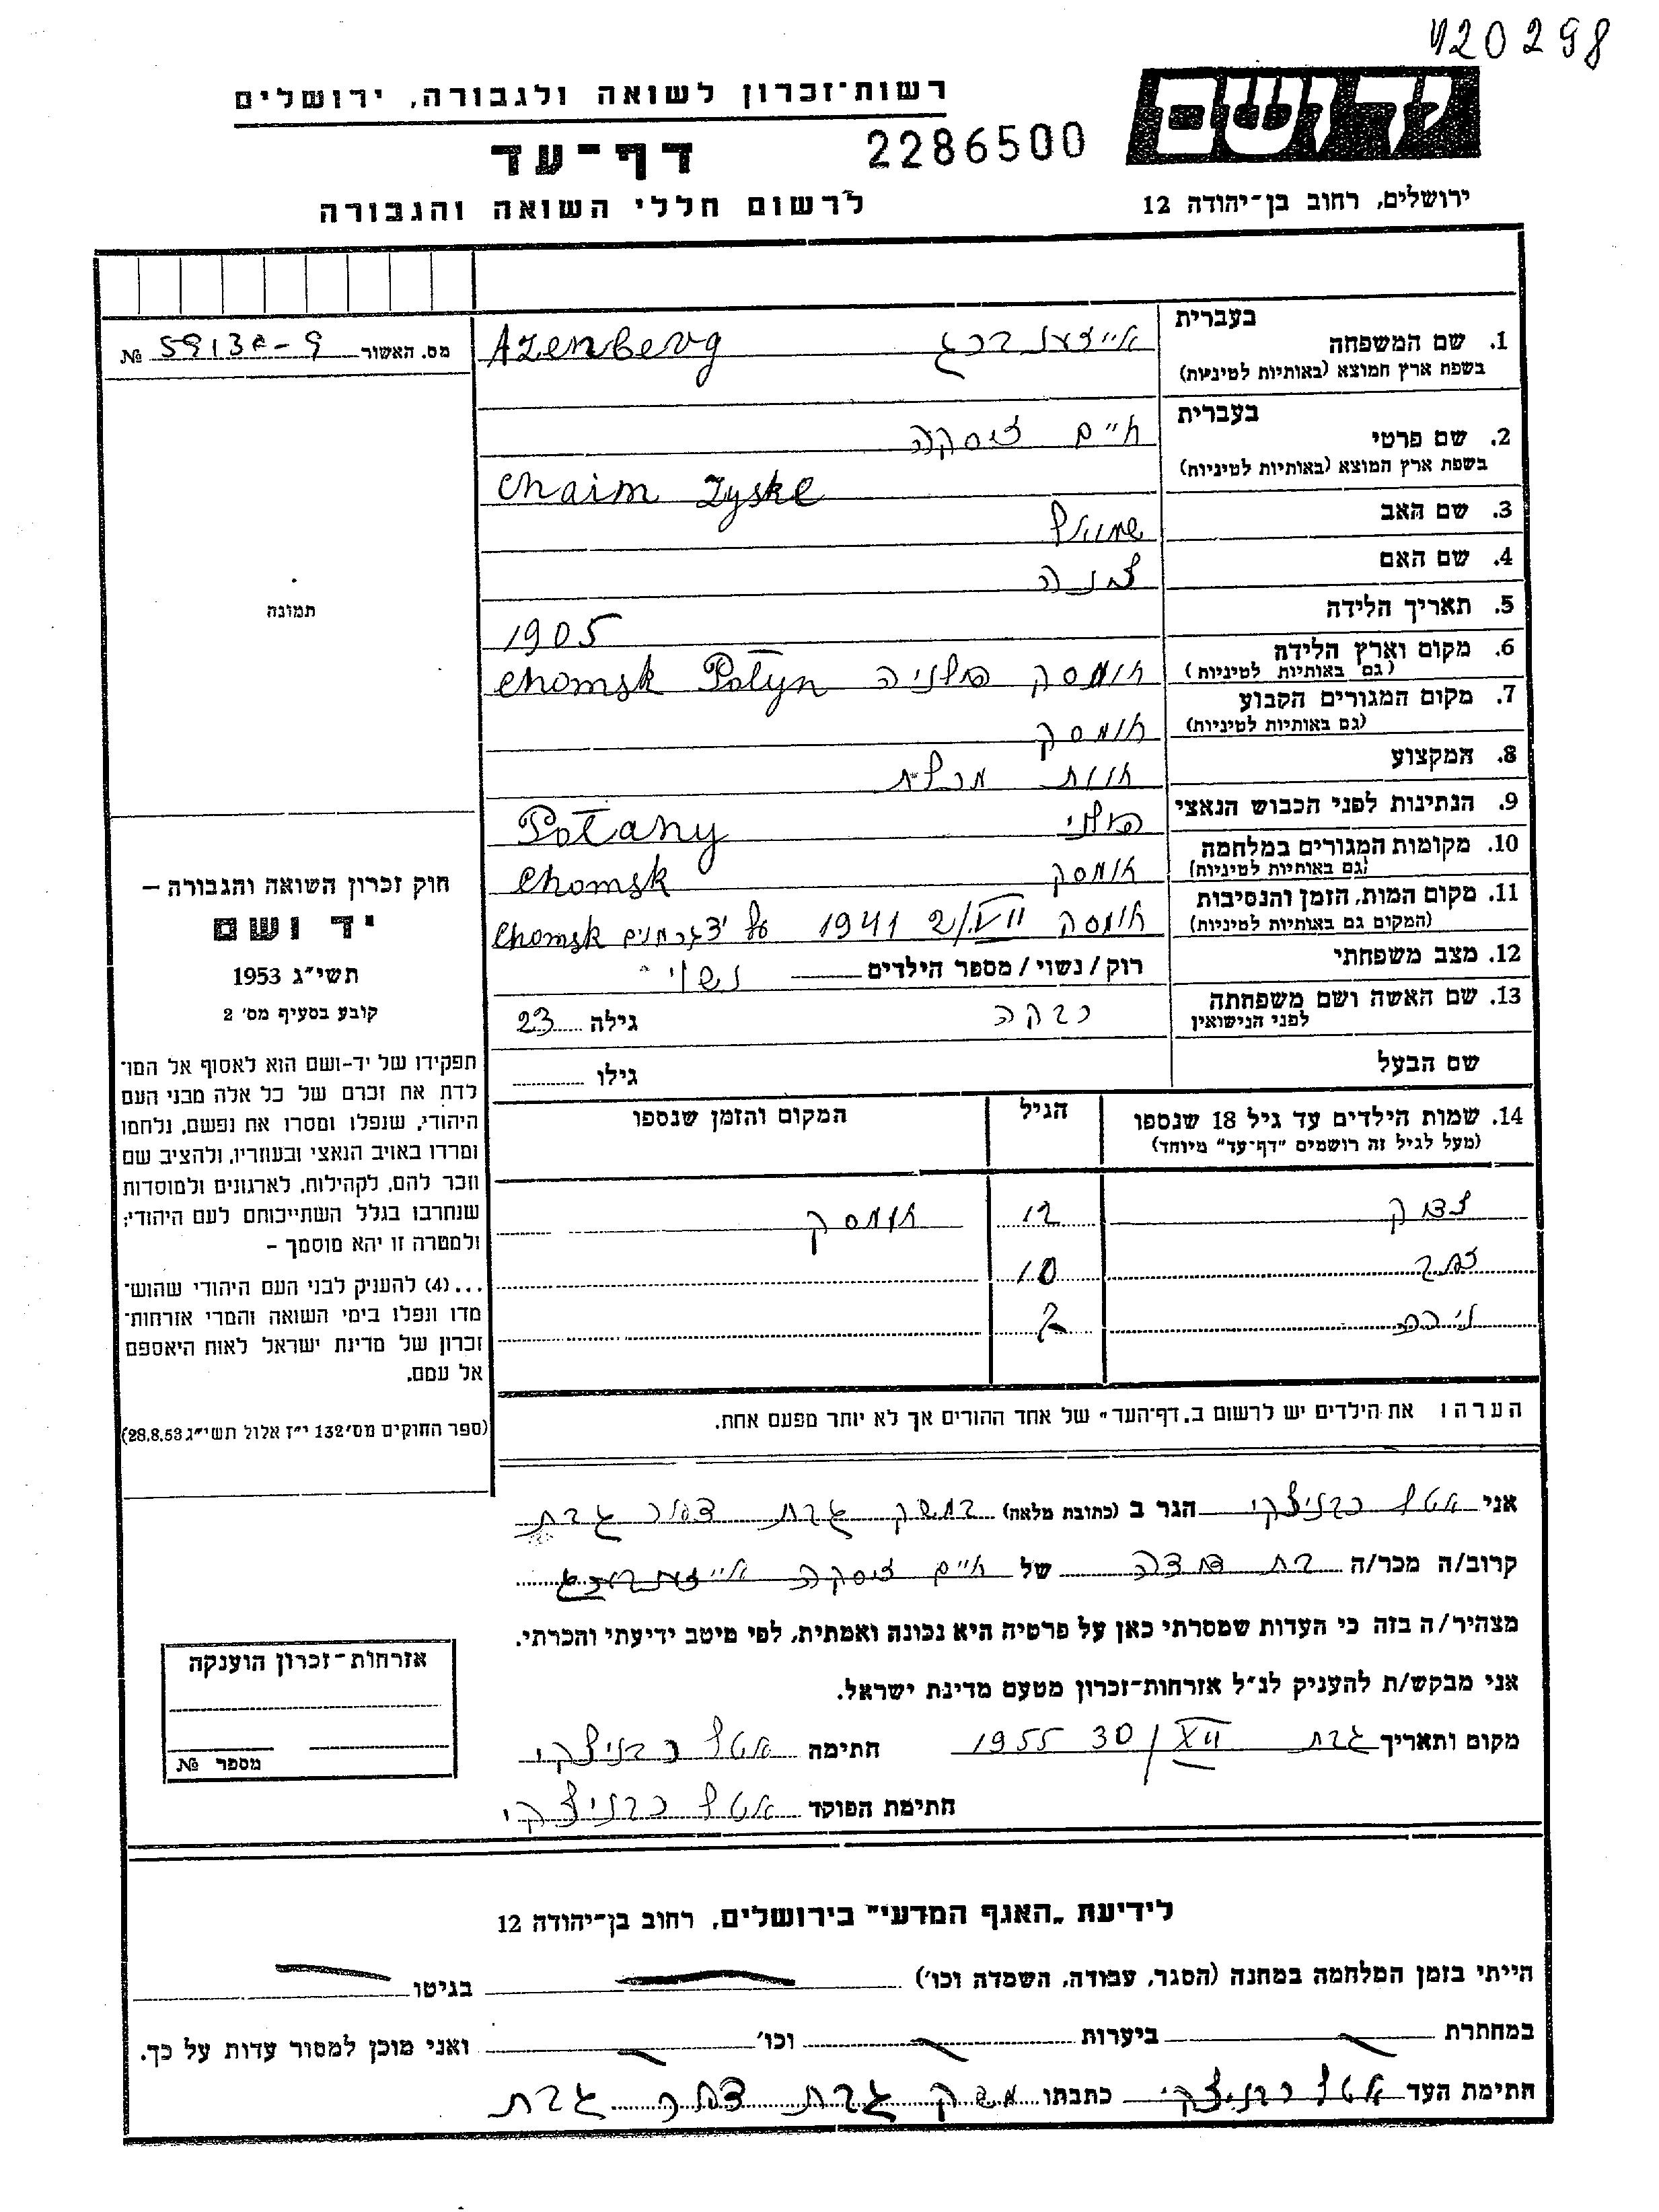 420298
רשות־זכרון לשואה ולגבורה, ירושלים
ידושם
דף־עד
2286500
לרשום חללי השואה והגבורה
ירושלים, רחוב בן־יהודה 12
מס. האשור № 5913<
1. שם המשפחה
בעברית
בשפת ארץ המוצא (באותיות לטיניות)
אייזענברג Azenberg
2. שם פרטי
בעברית
בשפת ארץ המוצא (באותיות לטיניות)
חיים זיסקה
Chaim Zyske
3. שם האב שמואל
4. שם האם
5. תאריך הלידה 1905
6. מקום וארץ הלידה
(גם באותיות לטיניות)
חומסק פולניה Chomsk Polyn
7. מקום המגורים הקבוע
(גם באותיות לטיניות)
חומסק
8. המקצוע חנות
9. הנתינות לפני הכבוש הנאצי פולני Polany
10. מקומות המגורים במלחמה
(גם באותיות לטיניות)
חומסק Chomsk
11. מקום המות, הזמן והנסיבות
(המקום גם באותיות לטיניות)
חומסק 2/VII 1941 על יד גרמנים Chomsk
12. מצב משפחתי רוק / נשוי / מספר הילדים נשוי
13. שם האשה ושם משפחתה
לפני הנישואין
רבקה גילה 23
שם הבעל גילו
14. שמות הילדים עד גיל 18 שנספו
(מעל לגיל זה רושמים "דף־עד" מיוחד)
הגיל
המקום והזמן שנספו
12 חומסק
10
2
הערה: את הילדים יש לרשום ב„דף־העד" של אחד ההורים אך לא יותר מפעם אחת.
תמונה
חוק זכרון השואה והגבורה –
יד ושם
תשי״ג 1953
קובע בסעיף מס׳ 2
תפקידו של יד-ושם הוא לאסוף אל המו־
לדת את זכרם של כל אלה מבני העם
היהודי, שנפלו ומסרו את נפשם, נלחמו
ומרדו באויב הנאצי ובעוזריו, ולהציב שם
וזכר להם, לקהילות, לארגונים ולמוסדות
שנחרבו בגלל השתייכותם לעם היהודי;
ולמטרה זו יהא מוסמך –
...(4) להעניק לבני העם היהודי שהוש־
מדו ונפלו בימי השואה והמרי אזרחות־
זכרון של מדינת ישראל לאות היאספם
אל עמם.
(ספר החוקים מס׳ 132 י״ז אלול תשי״ג 28.8.53)
אני אטל רבניצקי הגר ב (כתובת מלאה) במשק גבת דואר גבת
קרוב/ה מכר/ה בת דודה של חיים זיסקה אייזענברג
מצהיר/ה בזה כי העדות שמסרתי כאן על פרטיה היא נכונה ואמתית, לפי מיטב ידיעתי והכרתי.
אני מבקש/ת להעניק לנ״ל אזרחות־זכרון מטעם מדינת ישראל.
מקום ותאריך גבת 30/XII 1955 חתימה אטל רבניצקי
חתימת הפוקד אטל רבניצקי
אזרחות־זכרון הוענקה
מספר №
לידיעת „האגף המדעי" בירושלים, רחוב בן־יהודה 12
הייתי בזמן המלחמה במחנה (הסגר, עבודה, השמדה וכו׳) בגיטו
במחתרת ביערות וכו׳ ואני מוכן למסור עדות על כך.
חתימת העד אטל רבניצקי כתבתו משק גבת דואר גבת